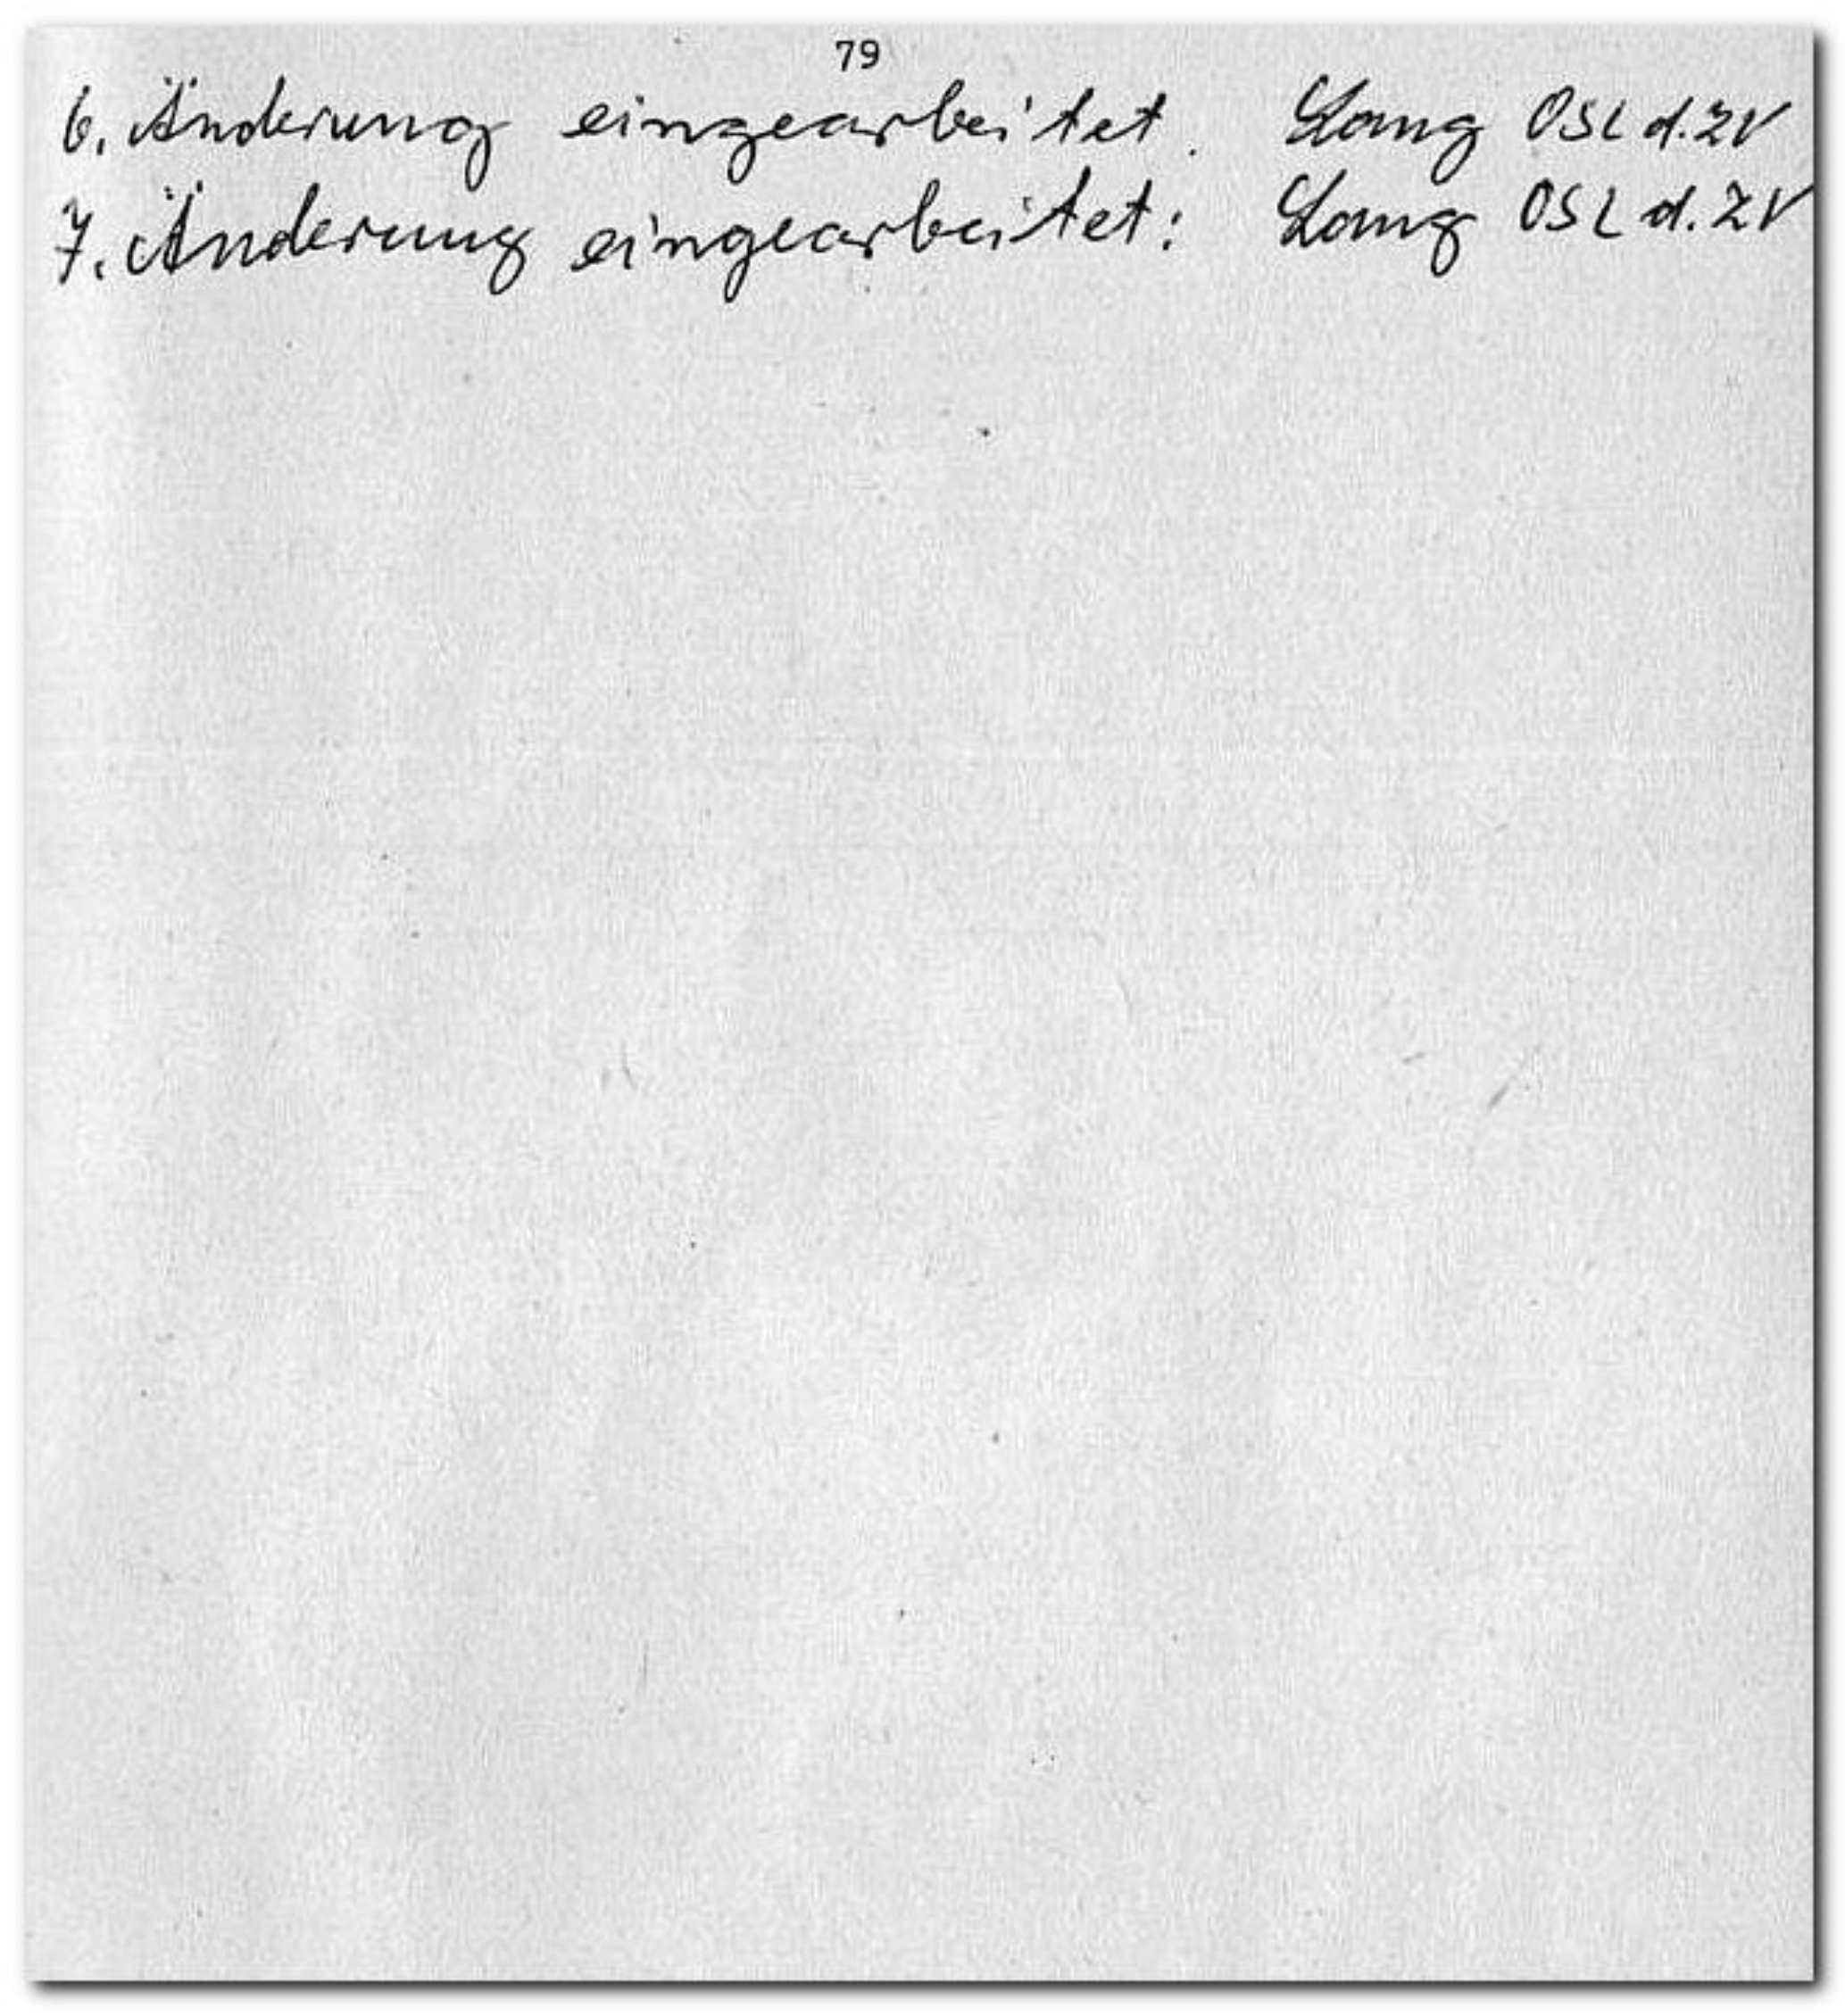 79
6. Änderung eingearbeitet. Lang OSL d. ZV
7. Änderung eingearbeitet: Lang OSL d. ZV